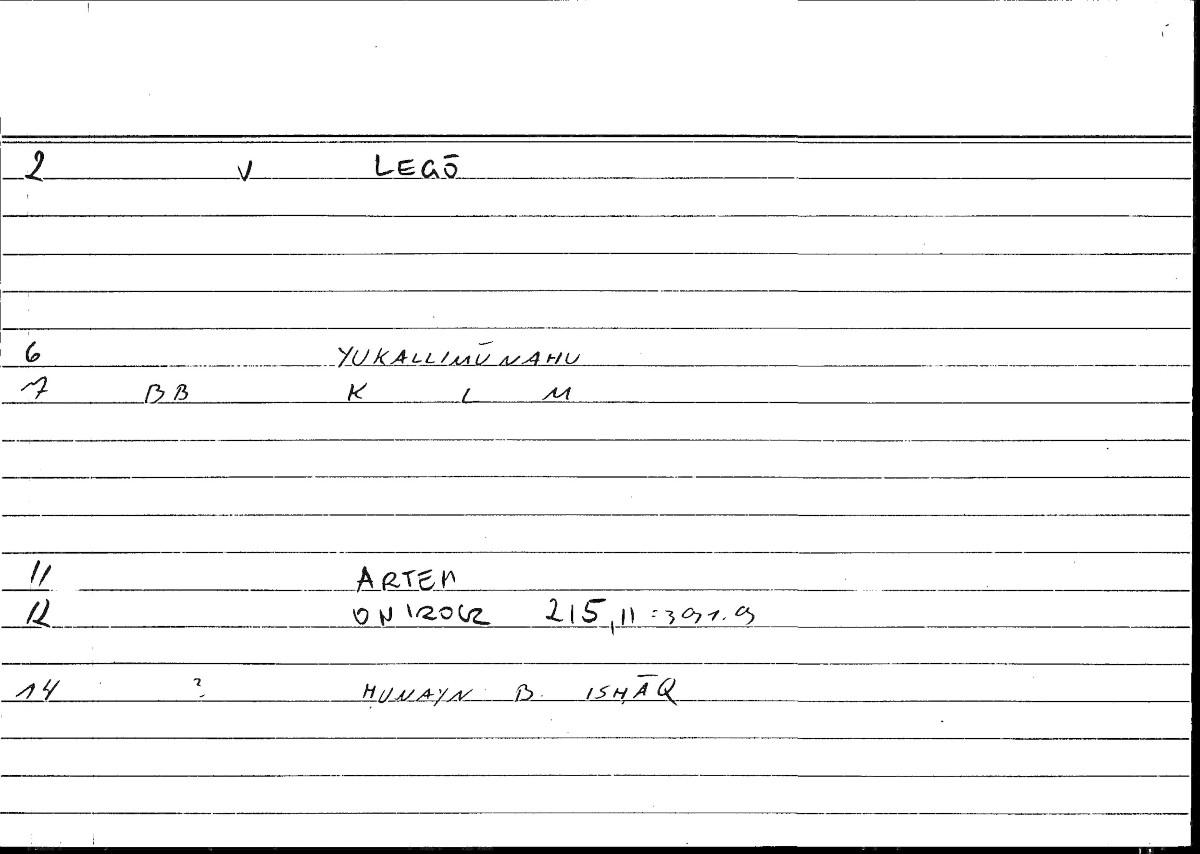 2 V LEGŌ
6 YUKALLIMŪNAHU
7 BB K L M
11 ARTEM
12 ONIROCR 215,11 = 391.9
14 ? ḤUNAYN B. ISḤĀQ